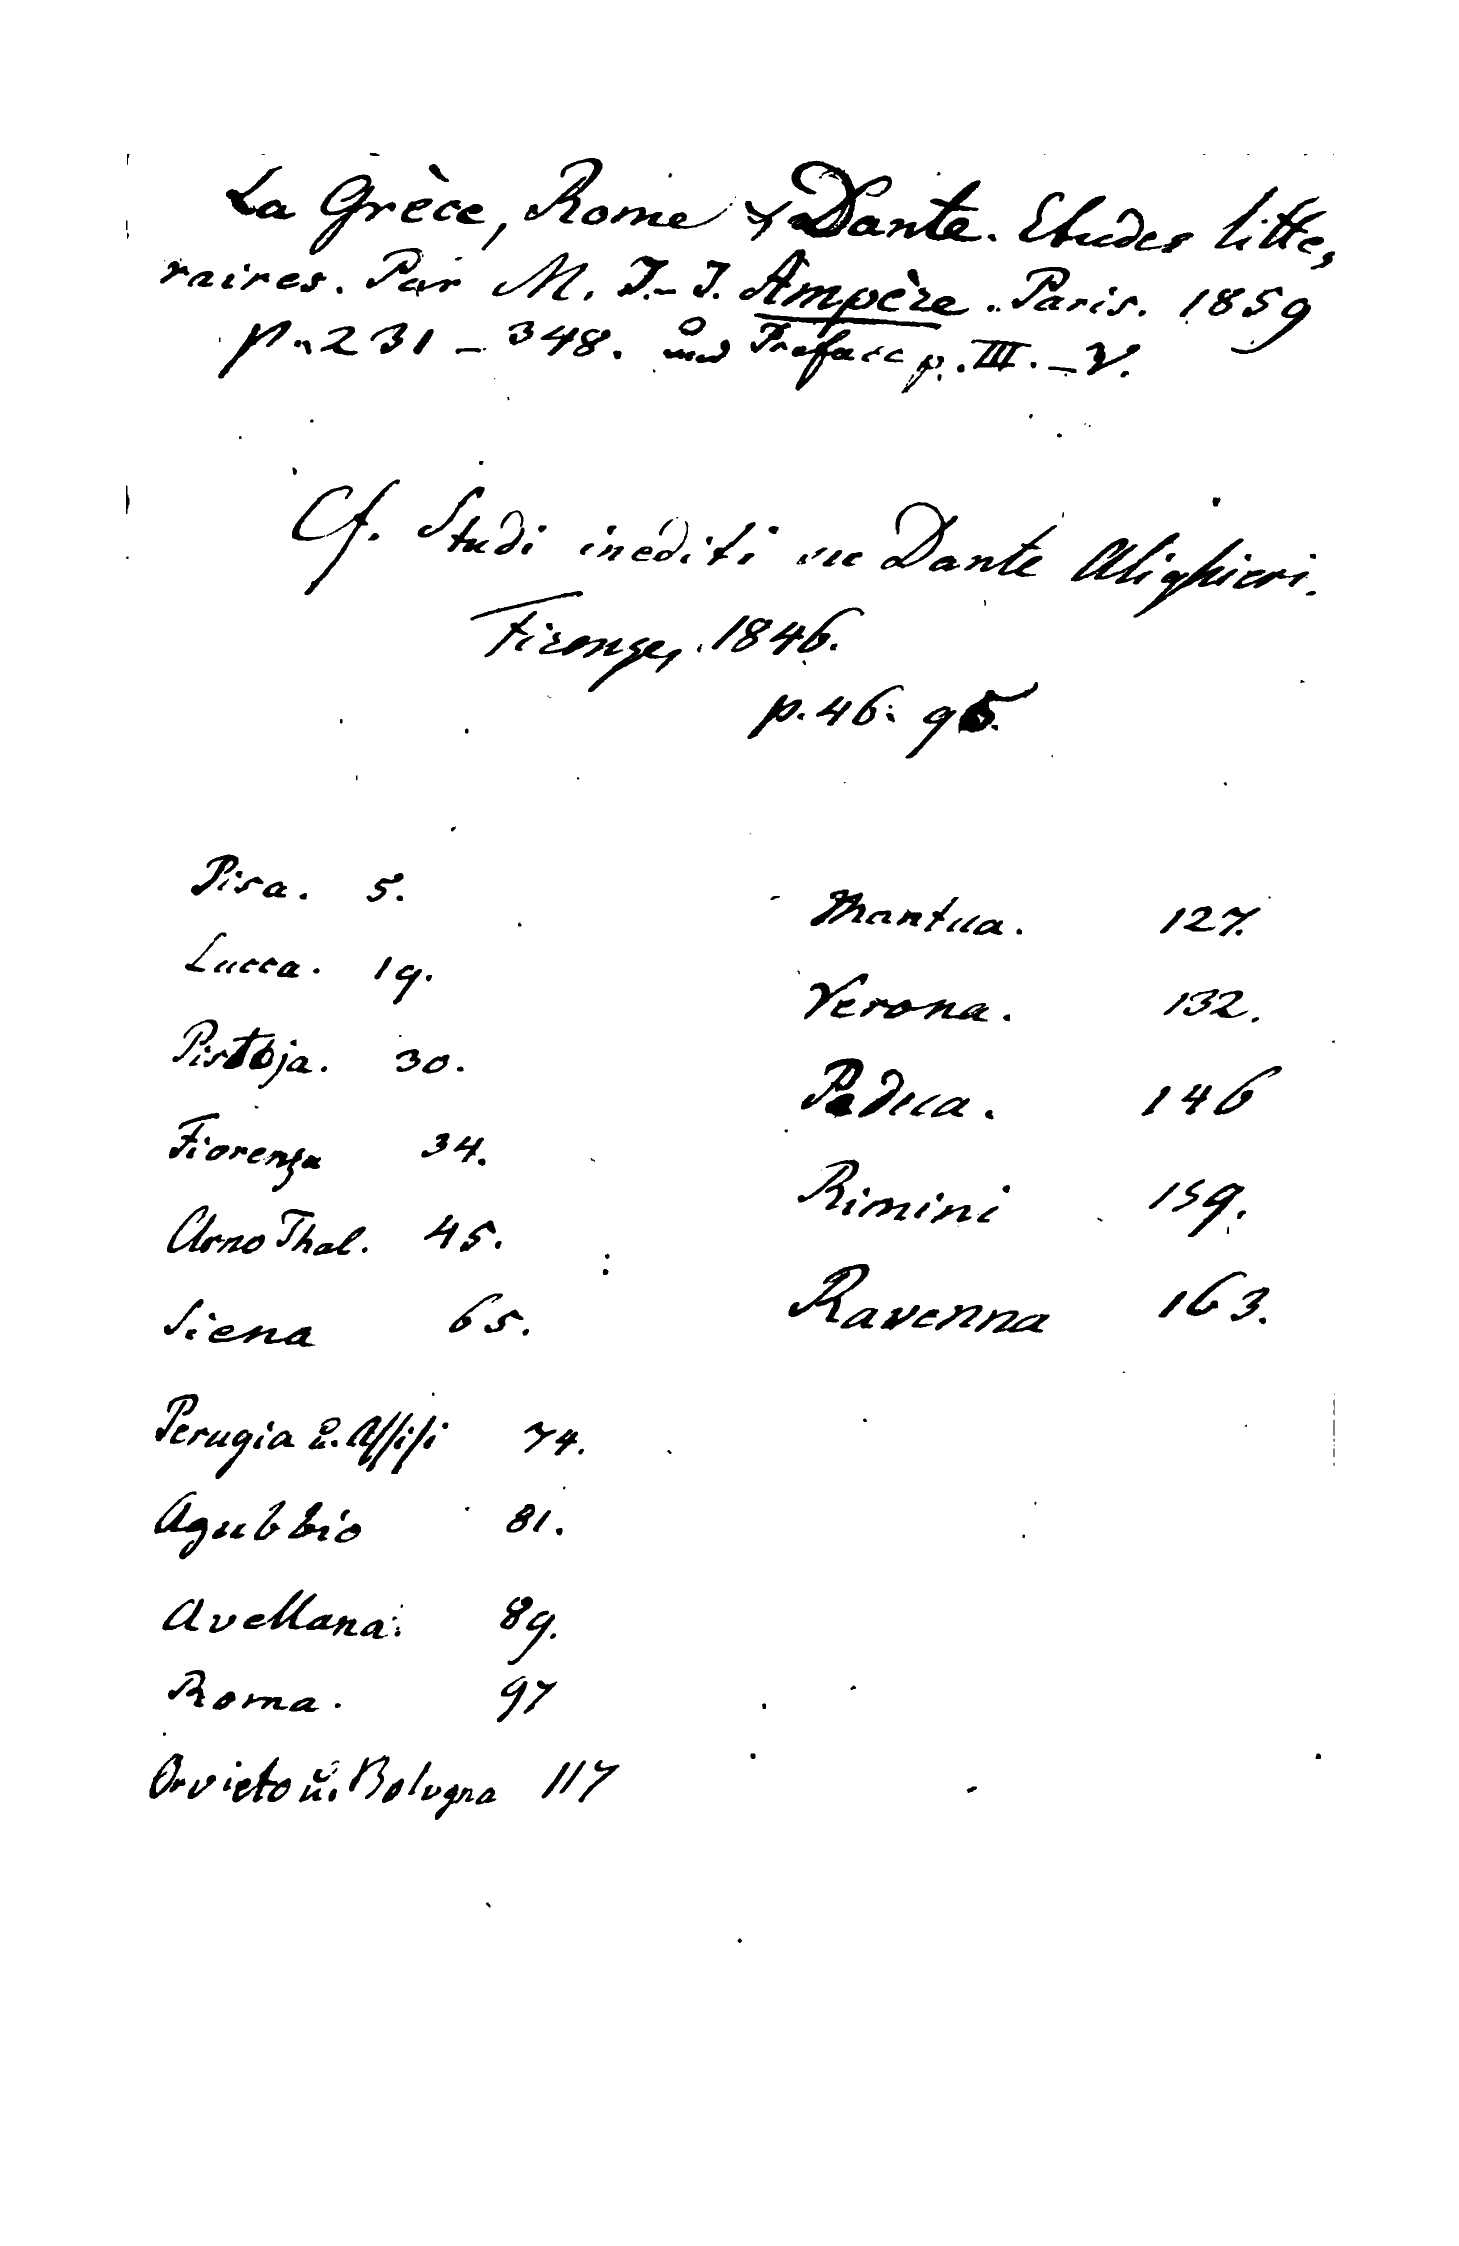 La Grèce, Rome & Dante. Etudes litte,
raires. Par M. J.-J. Ampère. Paris. 1859
p. 231 - 348. und Preface p. III. - V.
Cf. Studi inediti su Dante Alighieri.
Firenze, 1846.
p. 46. 95.
Pisa. 5.
Lucca. 19.
Pistoja. 30.
Fiorenza 34.
Arno Thal. 45.
Siena 65.
Perugia u. Assisi 74.
Agubbio 81.
Avellana. 89.
Roma. 97
Orvieto u. Bologna 117
Mantua. 127.
Verona. 132.
Padua. 146
Rimini 159.
Ravenna 163.